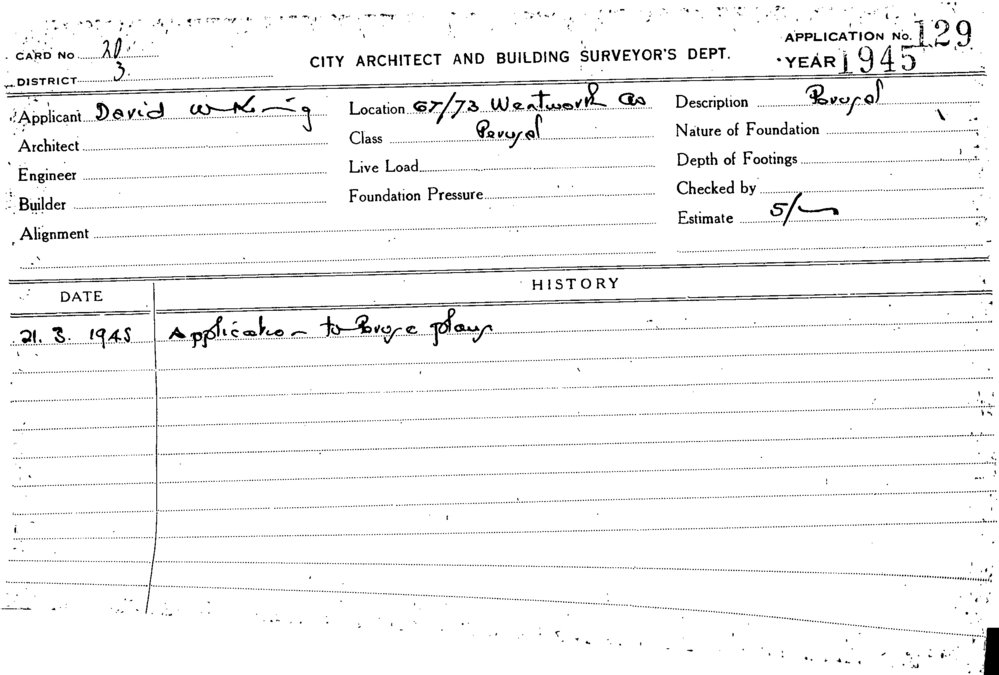 CARD NO 20.
DISTRICT 3.
CITY ARCHITECT AND BUILDING SURVEYOR'S DEPT.
APPLICATION No. 129
YEAR 1945
Applicant David W King
Architect
Engineer
Builder
Alignment
Location 67/73 Wentworth Av
Class Perusal
Live Load
Foundation Pressure
Description Perusal
Nature of Foundation
Depth of Footings
Checked by
Estimate 5/-
DATE
HISTORY
21. 3. 1945 Application to Peruse plans